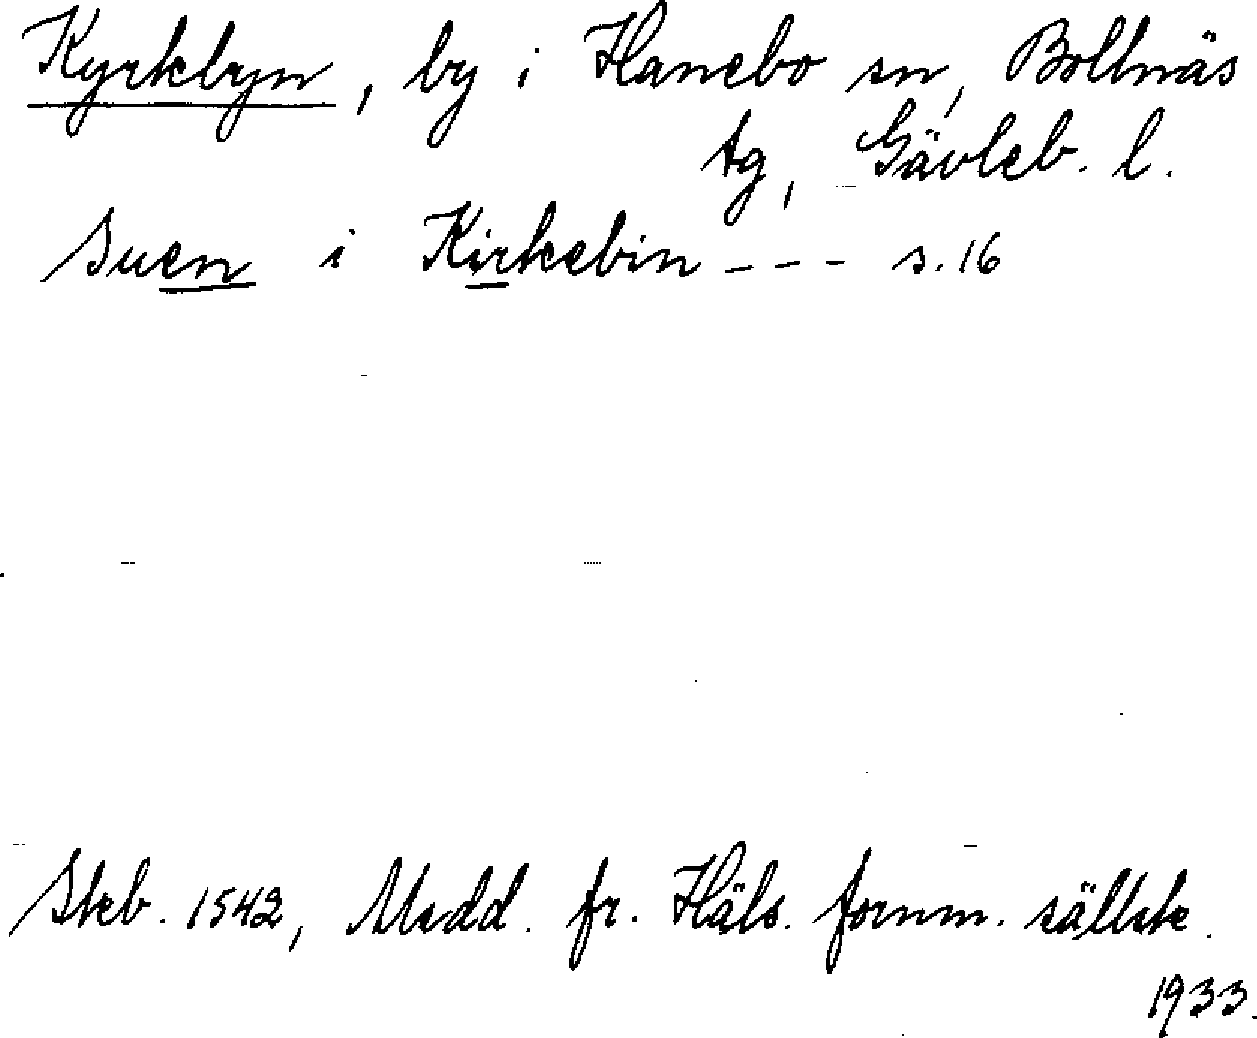 Kyrkbyn, by i Hanebo sn, Bollnäs
tg, Gävleb. l.
Suen i Kirkebin --- s. 16
Skb. 1542, Medd. fr. Häls. fornm. sällsk.
1933.